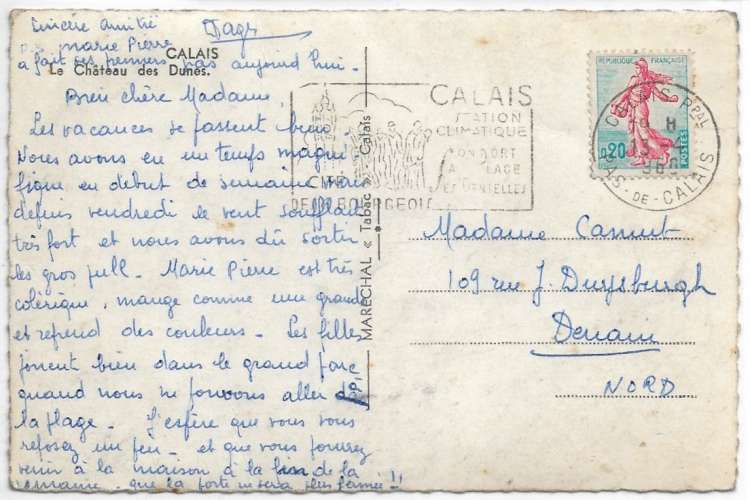 Sincère amitié
Marie Pierre
a fait ses premiers pas aujourd'hui -
CALAIS
Le Château des Dunes.
Bien chère Madame,
Les vacances se passent bien.
Nous avons eu un temps magni
fique en début de semaine mais
depuis vendredi le vent soufflait
très fort et nous avons dû sortir
les gros pull. Marie Pierre est très
colérique, mange comme une grande
et reprend des couleurs - Les filles
jouent bien dans le grand parc
quand nous ne pouvons aller à
la plage - J'espère que vous vous
reposez un peu - et que vous pourrez
venir à la maison à la fin de la
semaine - que la porte ne sera plus fermée !!
MARÉCHAL « Tabac » - Calais
CALAIS
STATION
CLIMATIQUE
CONFORT
PLAGE
DENTELLES
DES BOURGEOIS
REPUBLIQUE FRANÇAISE
0,20
POSTES
CALAIS PPAL
PAS-DE-CALAIS
Madame
109 rue J. Duysburgh
Denain
NORD